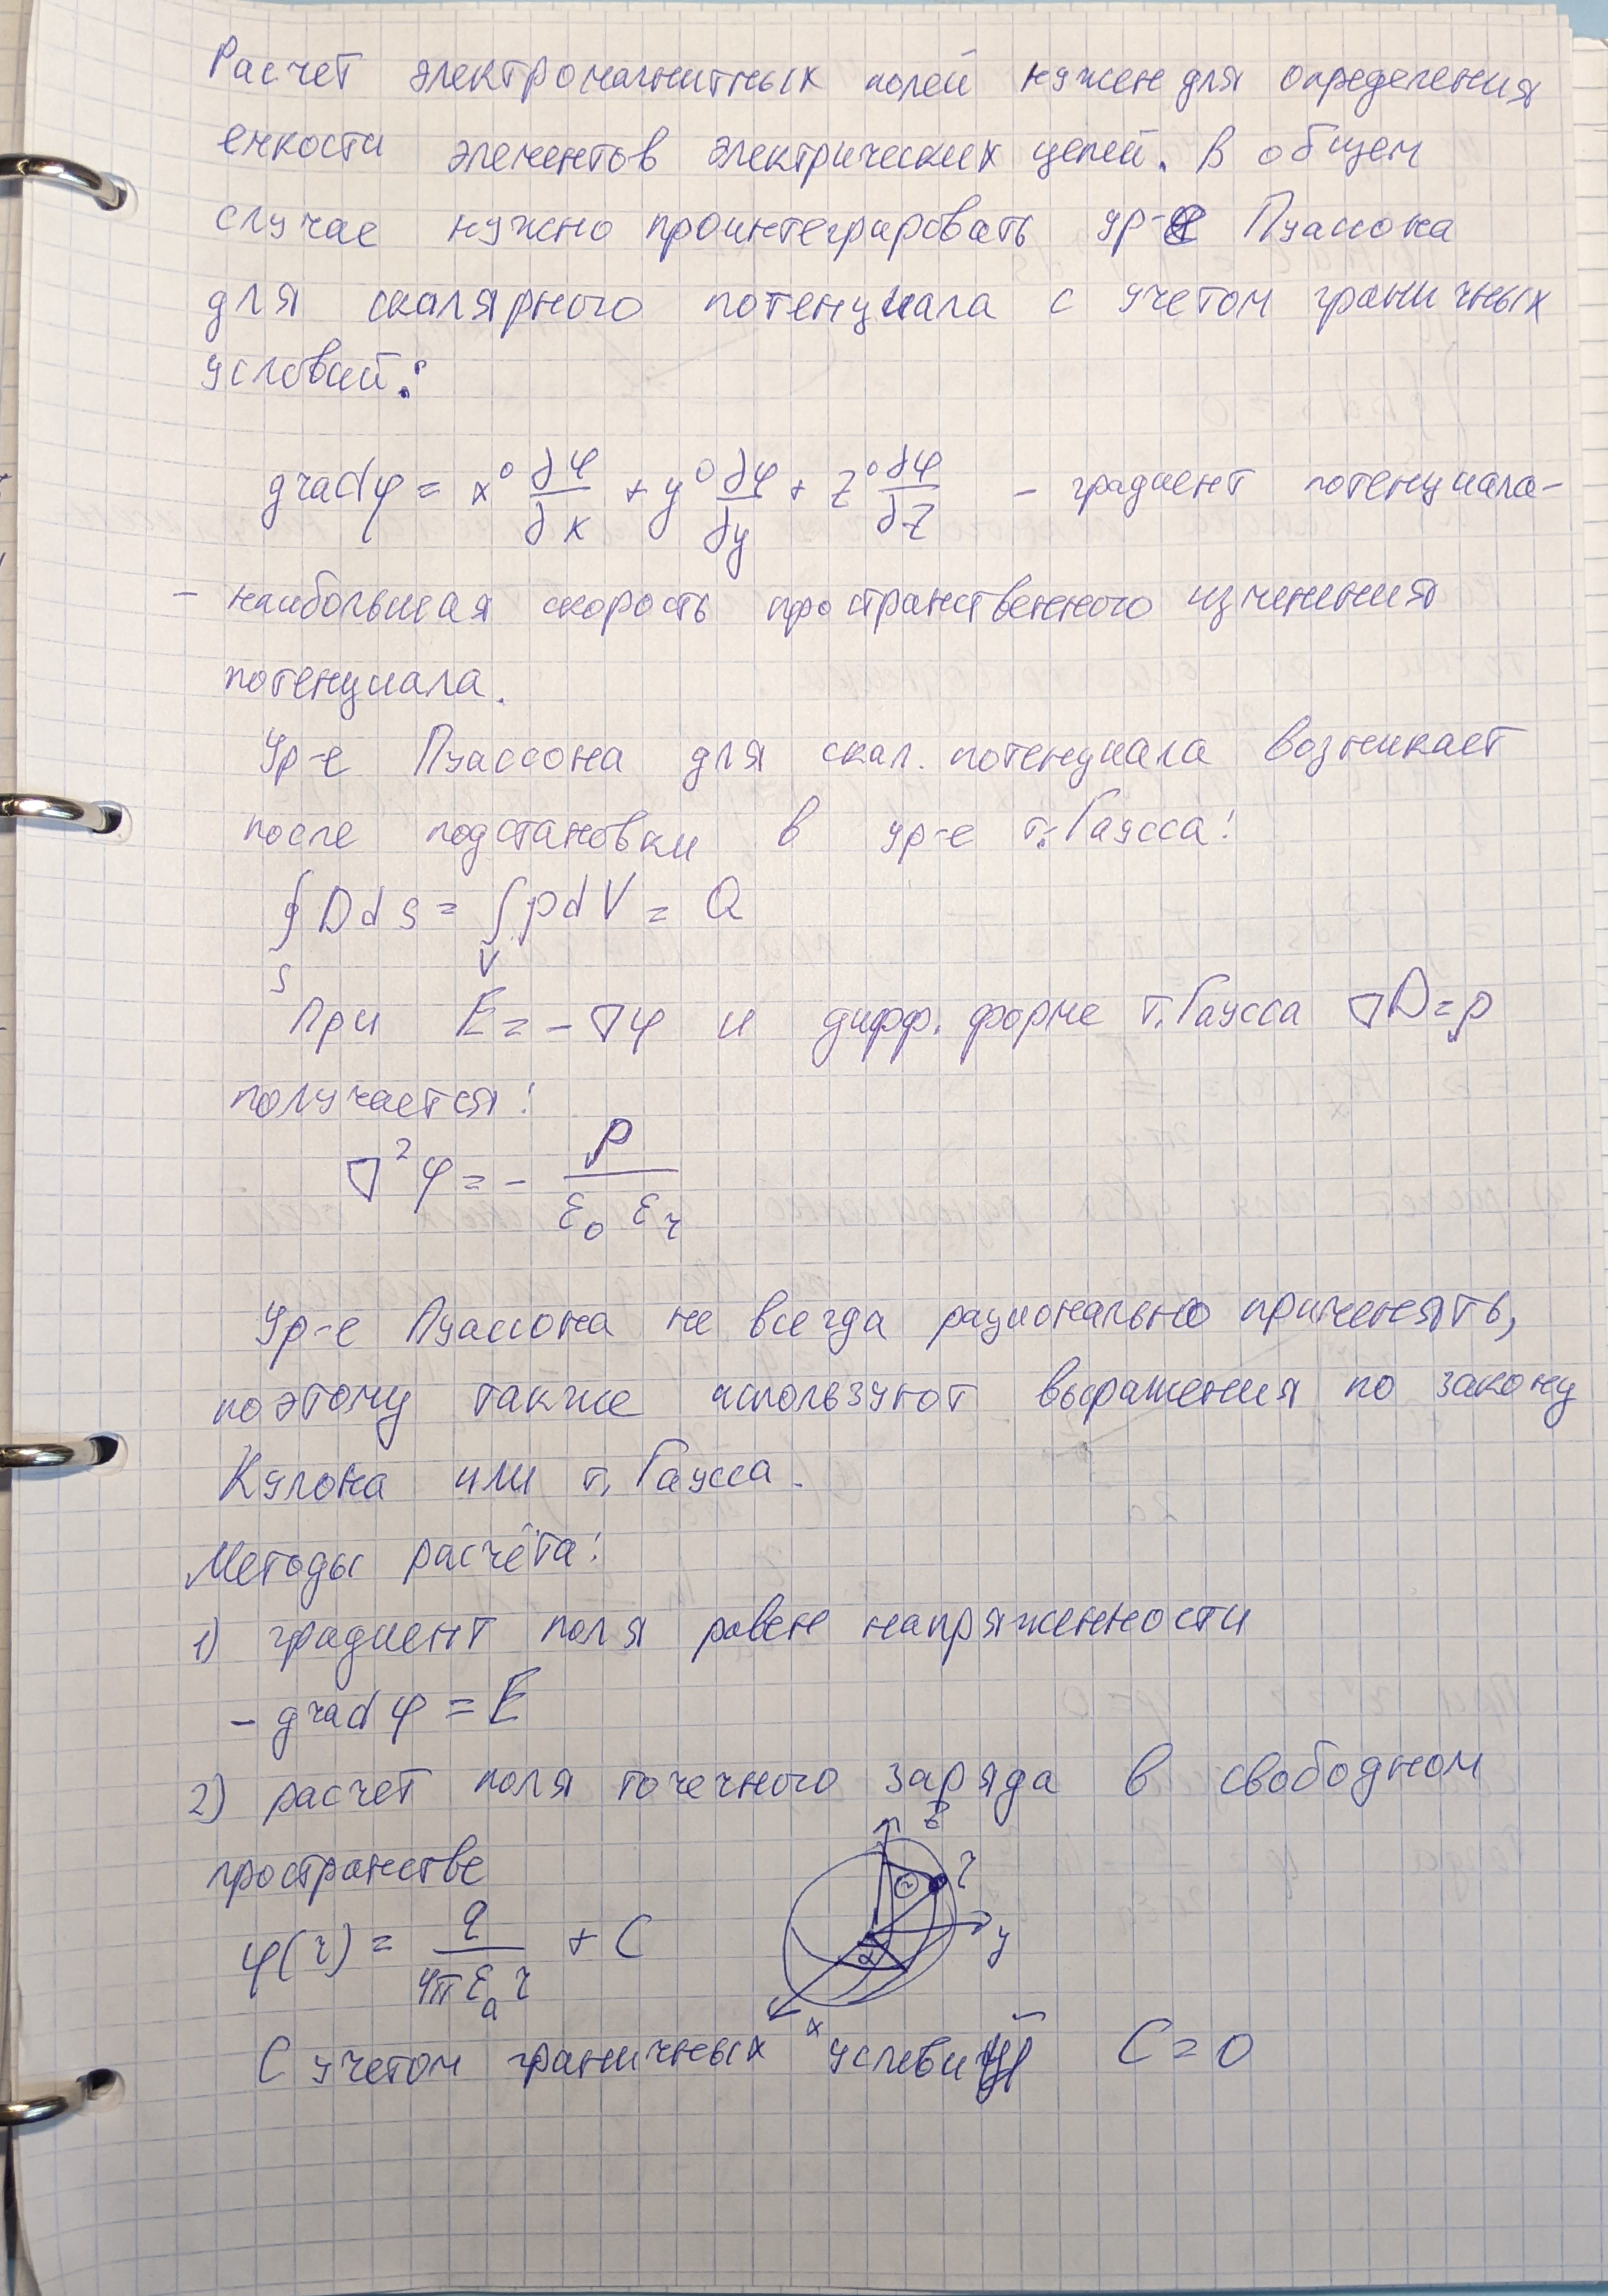 Расчет электромагнитных полей нужен для определения
емкости элементов электрических цепей. В общем
случае нужно проинтегрировать ур-е Пуассона
для скалярного потенциала с учетом граничных
условий:
grad φ = x⁰ ∂φ/∂x + y⁰ ∂φ/∂y + z⁰ ∂φ/∂z - градиент потенциала-
- наибольшая скорость пространственного изменения
потенциала.
Ур-е Пуассона для скал. потенциала возникает
после подстановки в ур-е т. Гаусса:
∮_S D ds = ∫_V ρ dV = Q
При E = - ∇φ и дифф. форме т. Гаусса ∇D = ρ
получается:
∇²φ = - ρ/(ε₀ εr)
Ур-е Пуассона не всегда рационально применять,
поэтому также используют выражения по закону
Кулона или т. Гаусса.
Методы расчёта:
1) градиент поля равен напряженности
- grad φ = E
2) расчет поля точечного заряда в свободном
пространстве
z
r
φ(r) = q/(4πεₐ r) + C
y
α
x
С учетом граничных условий C = 0